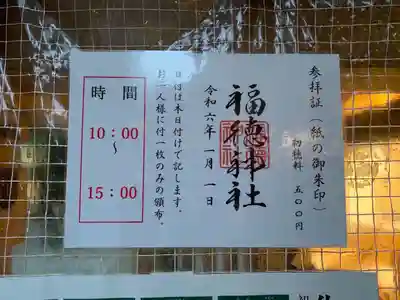 参拝証(紙の御朱印)
初穂料 五〇〇円
福徳神社
令和六年 一月 一日
日付は本日付けで記します。
お一人様に付一枚のみの頒布。
時間
10:00
~
15:00